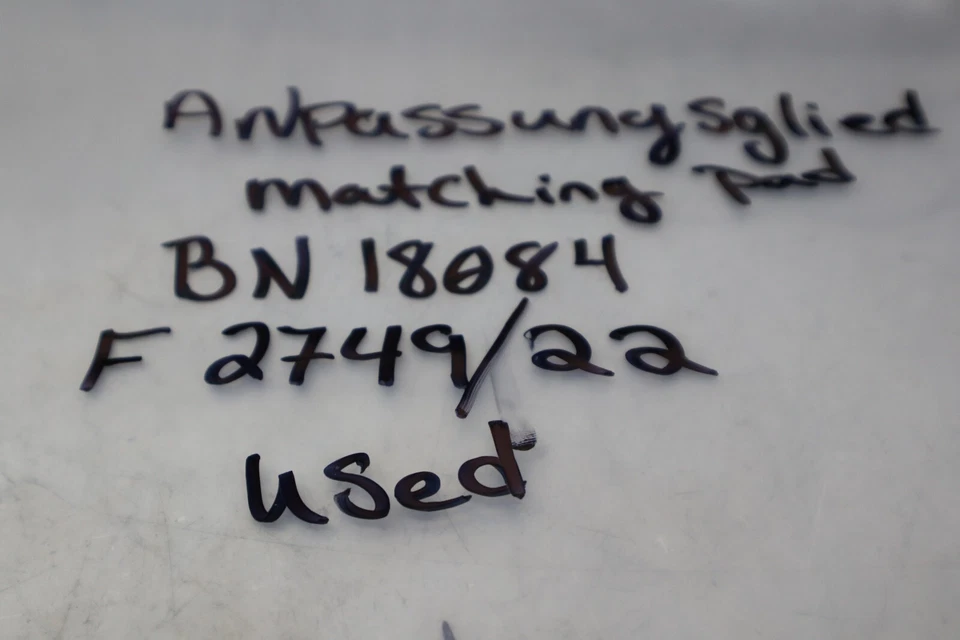 Anpassungsglied
matching Pad
BN 18084
F 2749/22
Used